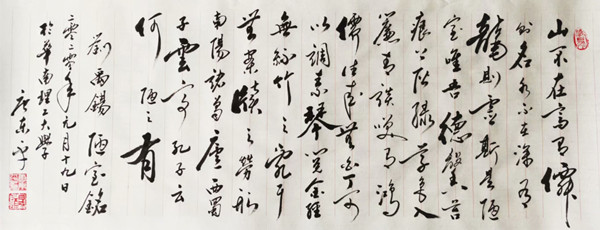 山不在高有僊
則名水不在深有
龍則靈斯是陋
室唯吾德馨苔
痕上阶绿草色入
簾青談笑有鴻
儒往來無白丁可
以調素琴閱金經
無絲竹之亂耳
無案牘之勞形
南陽諸葛廬西蜀
子雲亭孔子云
何陋之有
劉禹錫陋室銘
二零二零年元月十九日
於華南理工大學